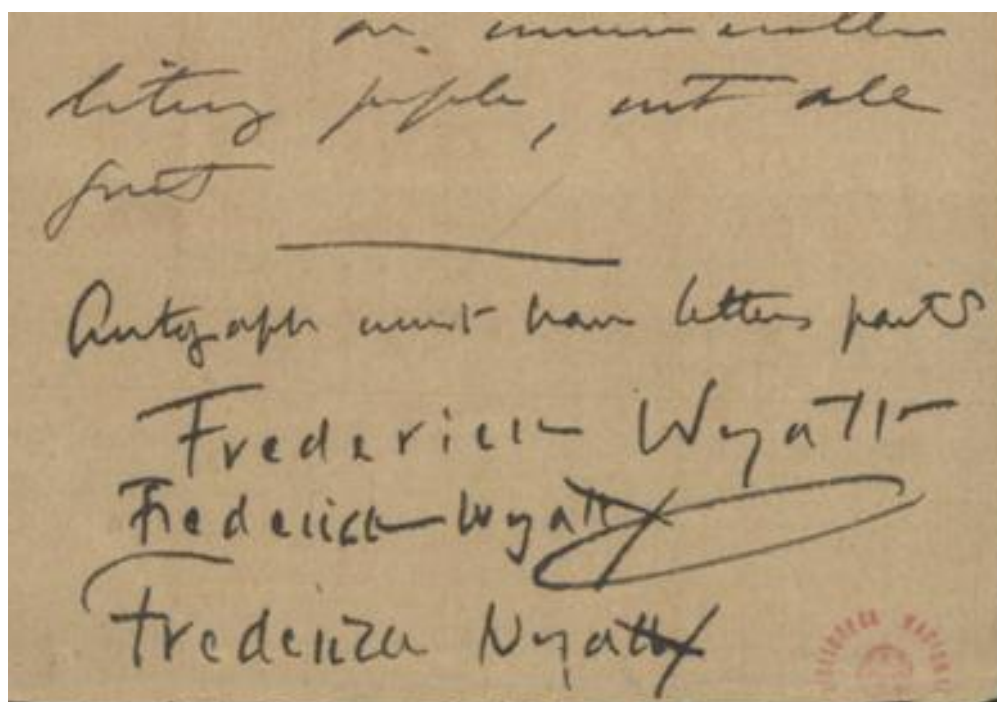 people, not all
great
Autograph must have letters parts
Frederick Wyatt
Frederick Wyatt
Frederick Wyatt